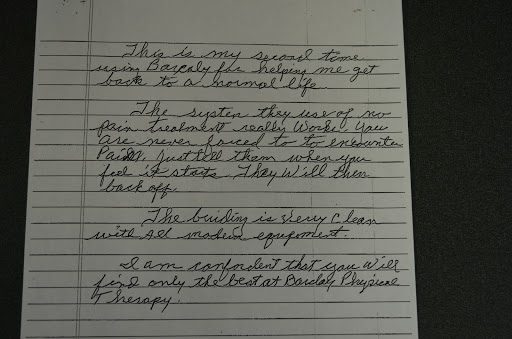 This is my second time
using Barcaly for helping me get
back to a normal life.
The systen they use of no
pain treatment really Works. You
are never forced to to encounter
Pain. Just tell them when you
feel it starts. They Will then
back off.
The buiding is very Clean
with All modern equipment.
I am confordent that you Will
find only the best at Barclay Physical
Therapy.